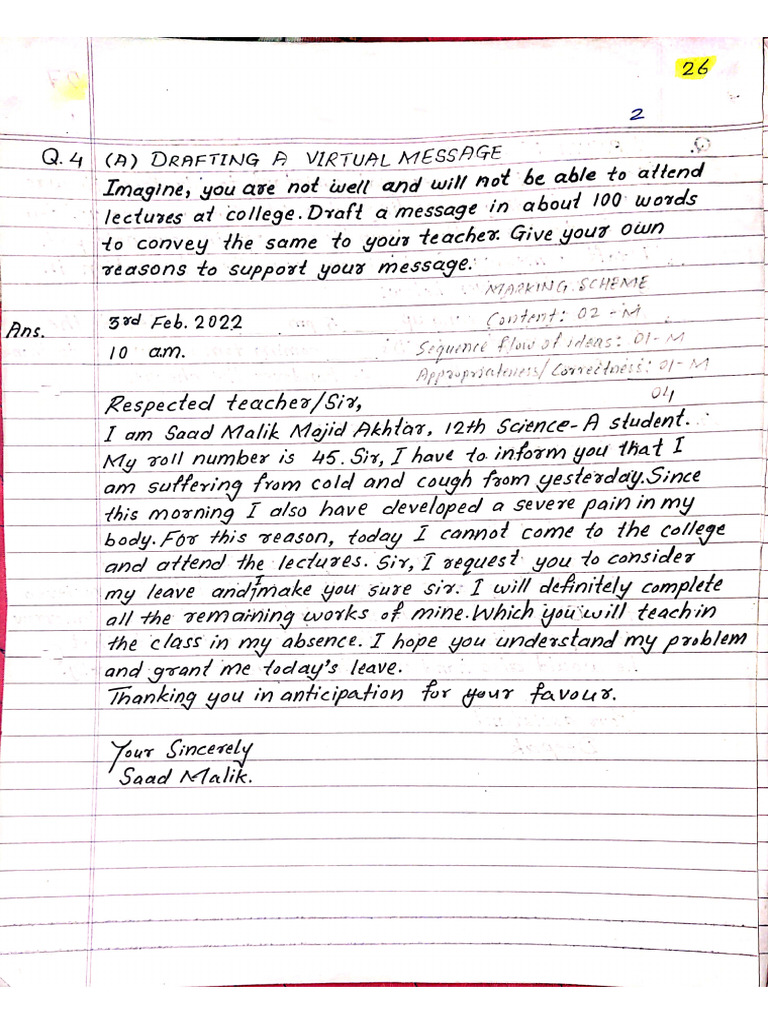 26
2
Q.4 (A) DRAFTING A VIRTUAL MESSAGE
Imagine, you are not well and will not be able to attend
lectures at college. Draft a message in about 100 words
to convey the same to your teacher. Give your own
reasons to support your message.
MARKING SCHEME
Ans. 3rd Feb. 2022
Content: 02 - M
10 am.
Sequence flow of ideas: 01-M
Appropriateness/Correctness: 01-M
04
Respected teacher/Sir,
I am Saad Malik Majid Akhtar, 12th Science-A student.
My roll number is 45. Sir, I have to inform you that I
am suffering from cold and cough from yesterday. Since
this morning I also have developed a severe pain in my
body. For this reason, today I cannot come to the college
and attend the lectures. Sir, I request you to consider
my leave and I make you sure sir. I will definitely complete
all the remaining works of mine. Which you will teach in
the class in my absence. I hope you understand my problem
and grant me today's leave.
Thanking you in anticipation for your favour.
Your Sincerely
Saad Malik.